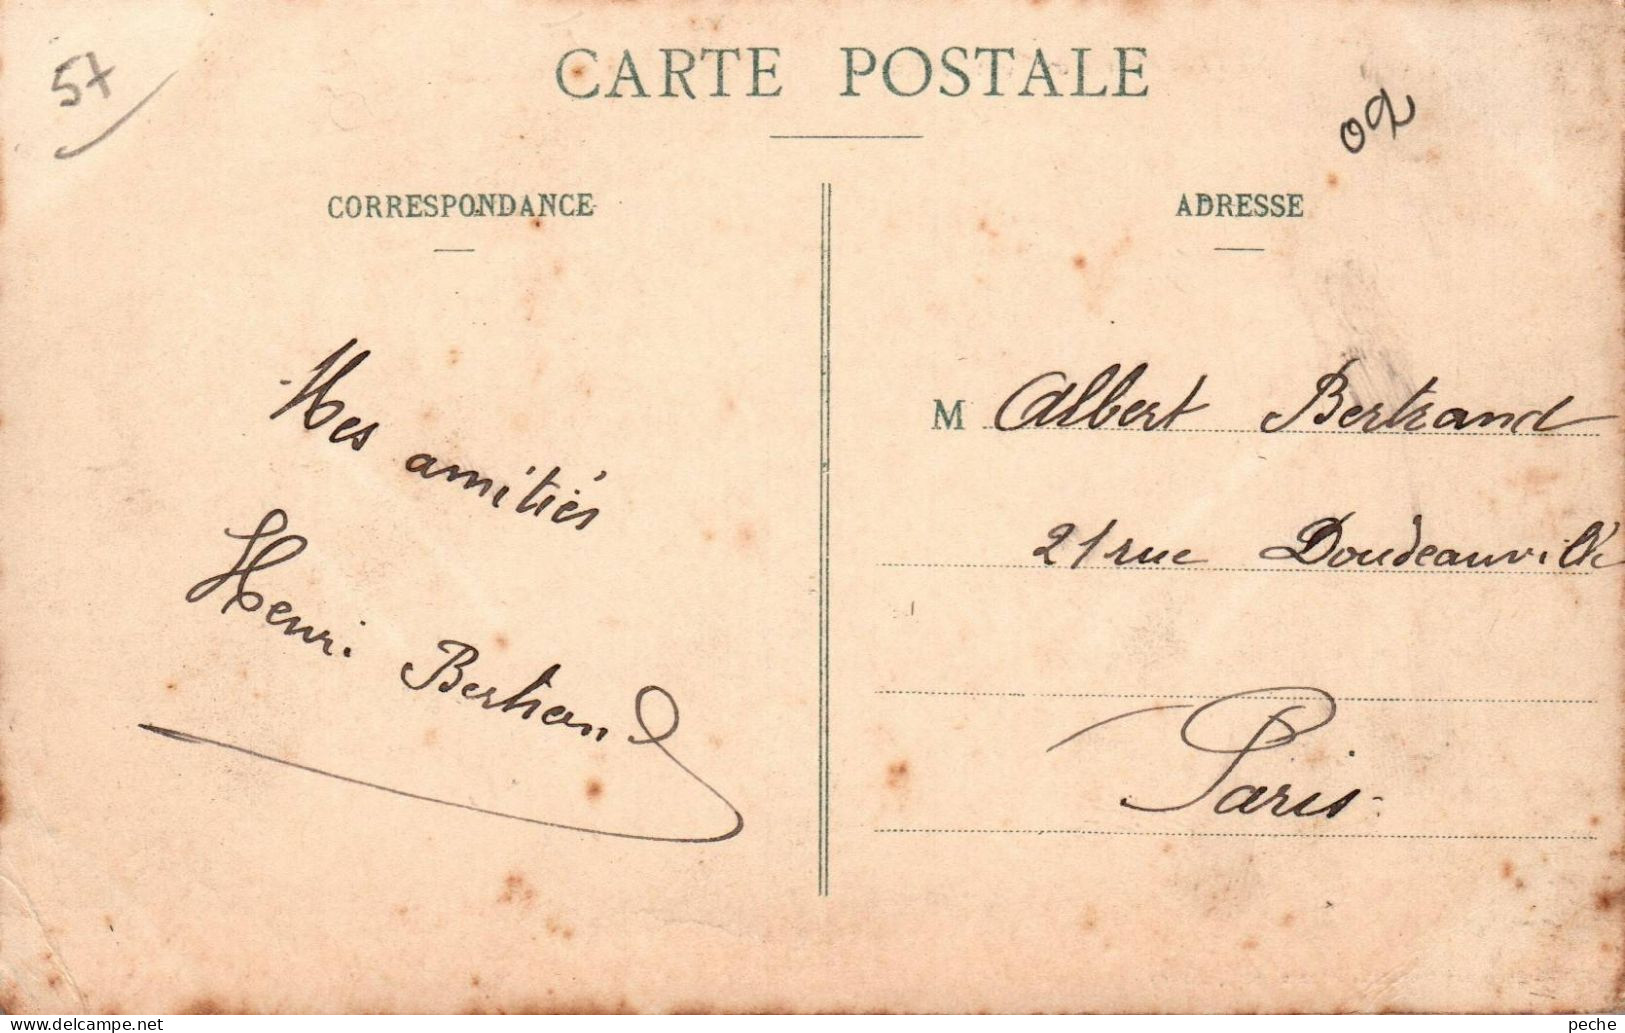 57
CARTE POSTALE
CORRESPONDANCE
ADRESSE
Mes amitiés
Henri Bertrand
M Albert Bertrand
21 rue Doudeauville
Paris
delcampe.net
peche